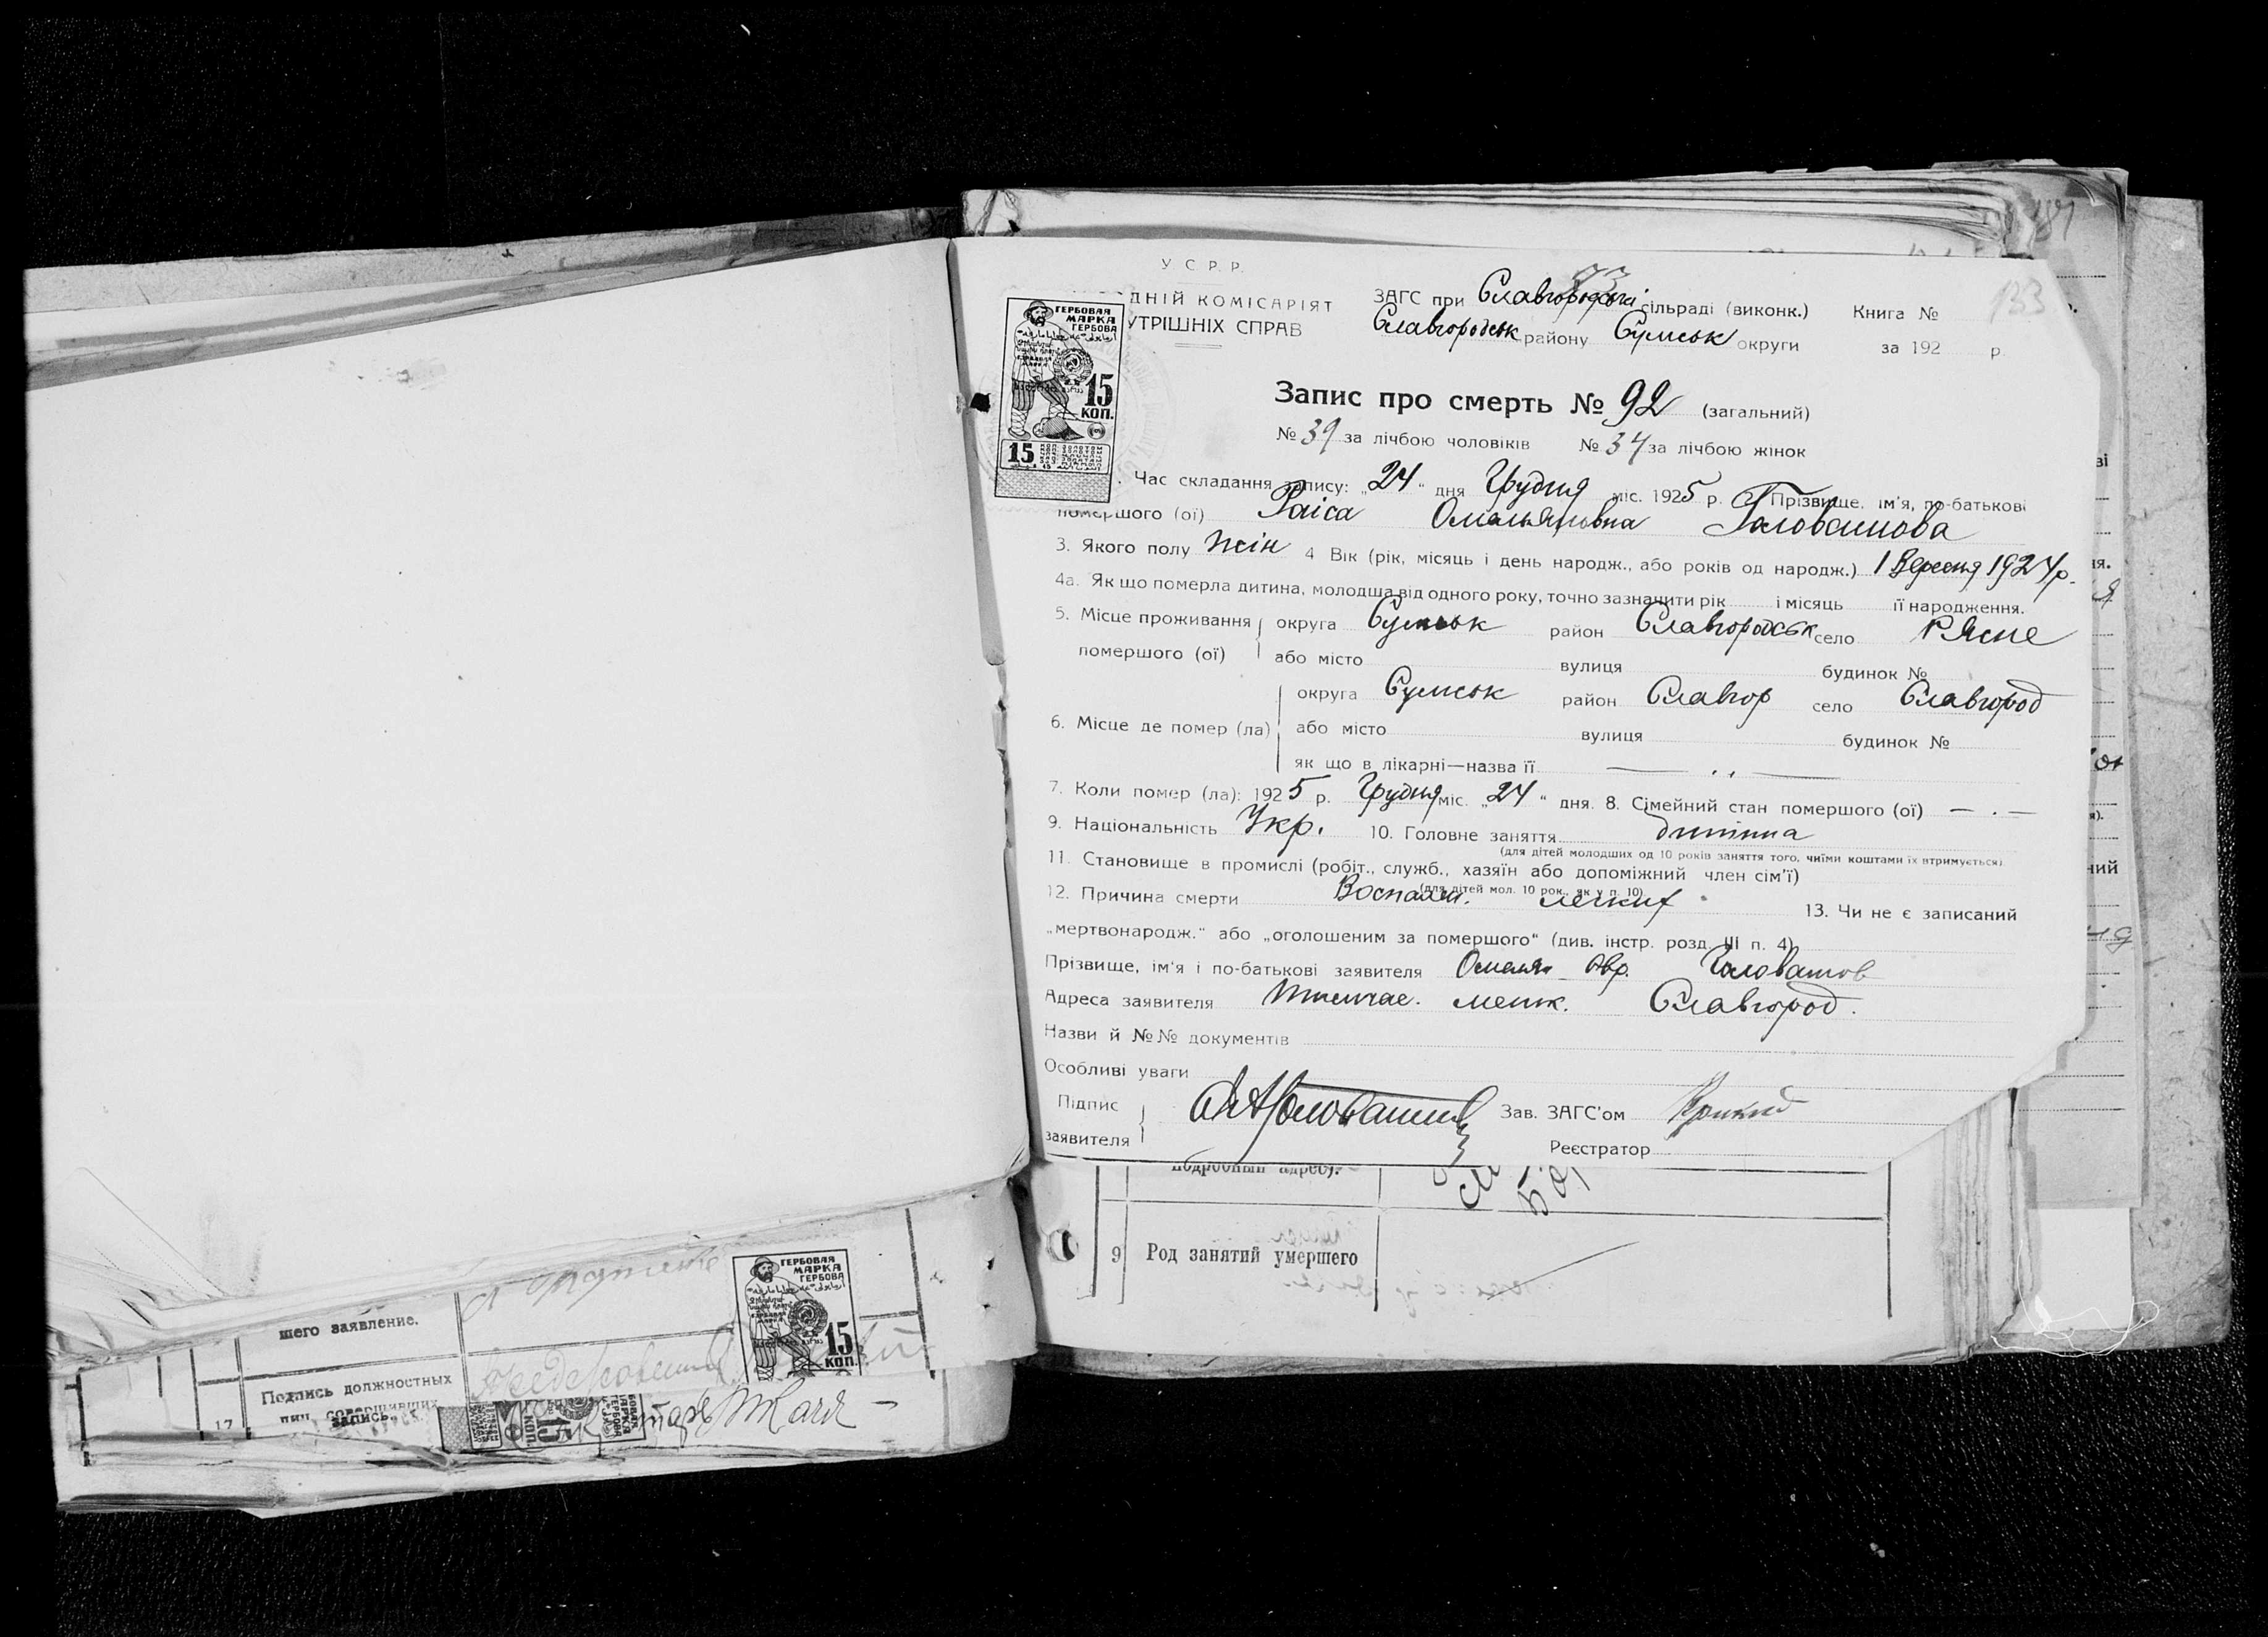 У С Р. Р.
ДНІЙ КОМІСАРІЯТ
УТРІШНІХ СПРАВ
ЗАГС при Славгородскі сільраді (виконк.) Книга №
133
Славгородськ району Сумськ округи за 192 р.
Запис про смерть № 92 (загальний)
№ 39 за лічбою чоловіків № 34 за лічбою жінок
Час складання запису: „24“ дня Грудня міс. 1925 р. 2. Прізвище, ім'я, по-батькові
помершого (ої) Раіса Омельяновна Головашова
3. Якого полу жін 4 Вік (рік, місяць і день народж., або років од народж.) 1 Вересня 1924 р.
4а. Як що померла дитина, молодша від одного року, точно зазначити рік і місяць її народження.
5. Місце проживання округа Сумськ район Славгородськ село Рясне
помершого (ої) або місто вулиця будинок №
округа Сумськ район Славгор село Славгород
6. Місце де помер (ла) або місто вулиця будинок №
як що в лікарні—назва її
7. Коли помер (ла): 1925 р. Грудня міс. „24“ дня. 8. Сімейний стан помершого (ої) — . —
9. Національність Укр. 10. Головне заняття дитина
(для дітей молодших од 10 років заняття того, чиїми коштами їх втримується)
11. Становище в промислі (робіт., служб., хазяїн або допоміжний член сім'ї)
(для дітей мол. 10 рок., як у п. 10)
12. Причина смерти Воспален. легких 13. Чи не є записаний
„мертвонародж.“ або „оголошеним за помершого“ (див. інстр. розд. III п. 4)
Прізвище, ім'я і по-батькові заявителя Омелян Головашов
Адреса заявителя мешк. Славгород.
Назви й №№ документів
Особливі уваги
Підпис
заявителя
Зав. ЗАГС'ом
Реєстратор
подробный адрес).
9 Род занятий умершего
шего заявление.
17 Подпись должностных
лиц, совершивших
запись.
ГЕРБОВАЯ
МАРКА
ГЕРБОВА
15
КОП.
15
ГЕРБОВАЯ
МАРКА
ГЕРБОВА
15
КОП.
15
КОП.